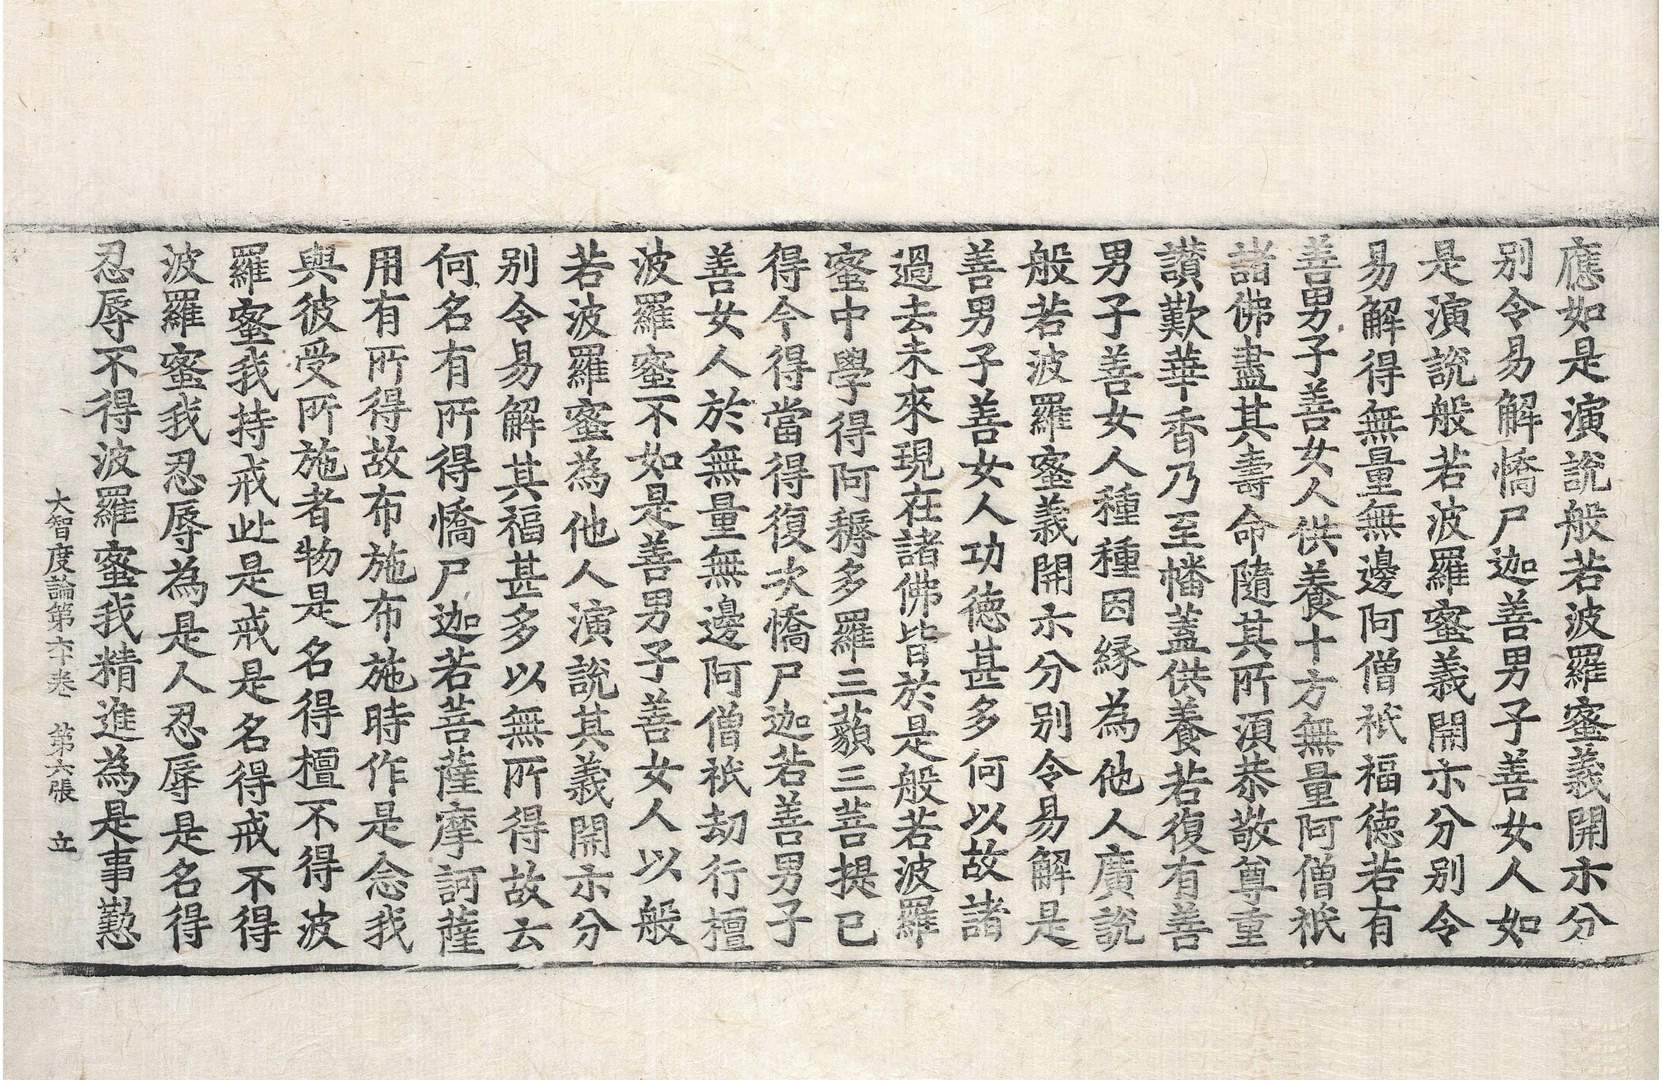 應如是演說般若波羅蜜義開示分
別令易解憍尸迦善男子善女人如
是演說般若波羅蜜義開示分別令
易解得無量無邊阿僧祇福德若有
善男子善女人供養十方無量阿僧祇
諸佛盡其壽命隨其所須恭敬尊重
讃歎華香乃至幡蓋供養若復有善
男子善女人種種因緣為他人廣說
般若波羅蜜義開示分別令易解是
善男子善女人功德甚多何以故諸
過去未來現在諸佛皆於是般若波羅
蜜中學得阿耨多羅三藐三菩提已
得今得當得復次憍尸迦若善男子
善女人於無量無邊阿僧祇劫行檀
波羅蜜不如是善男子善女人以般
若波羅蜜為他人演說其義開示分
別令易解其福甚多以無所得故云
何名有所得憍尸迦若菩薩摩訶薩
用有所得故布施布施時作是念我
與彼受所施者物是名得檀不得波
羅蜜我持戒此是戒是名得戒不得
波羅蜜我忍辱為是人忍辱是名得
忍辱不得波羅蜜我精進為是事懃
大智度論第六十卷 第六張 立